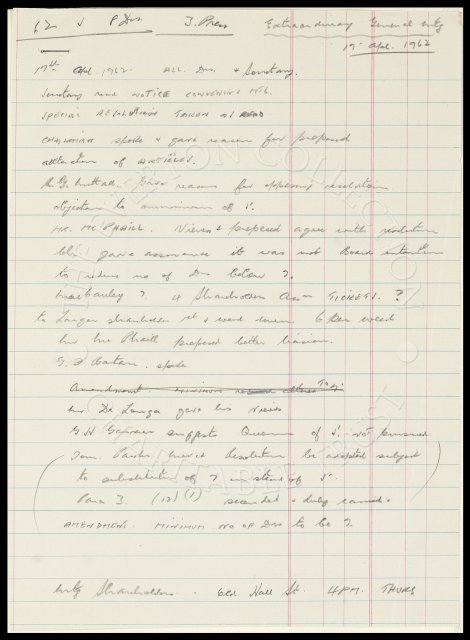 62 J P Drs 3. Press Extraordinary General Mtg
17th Apl. 1962
17th Apl. 1962. ALL. Drs + Secretary.
Secretary read NOTICE CONVENING MTG.
SPECIAL RESOLUTION TAKEN AS READ
CHAIRMAN spoke & gave reason for proposed
alteration of ARTICLES.
R. G. gave reasons for opposing resolution
objection to minimum of 5.
MR. Mc PHAILL. Views & proposed agree with resolution
gave assurance it was not Board intention
to reduce no of Drs below 7.
Macbauley ? 4 Shareholders TICKETS. ?
to Langer shareholder
Mr Mc Phaill proposed better liaison.
spoke
Amendment. MINIMUM
Mr De Langa gave his views
G H suggests Quorum of 5. not pursued
Tom. moved Resolution be adopted subject
to substitution of 7 instead of 5.
Para 3. (12) (1) seconded & duly carried.
AMENDMENT. MINIMUM NO OF Drs to be 7.
Mtg Shareholders. Old Hall St. 4PM. THURS
COLLECTION